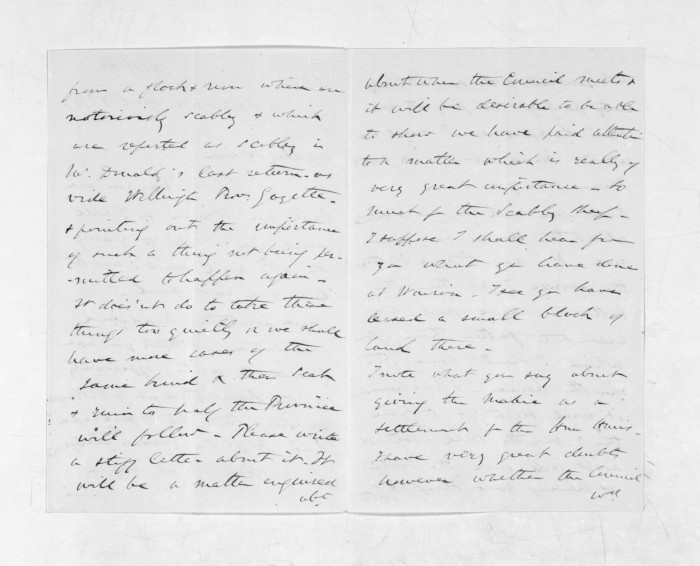 from a flock & run which are
notoriously scabby & which
are reported as scabby in
Mr. Donald's last return - as
vide Wellingtn Prov. Gazette -
& pointing out the importance
of such a thing not being per-
-mitted to happen again -
It doesn't do to take these
things too quietly or we shall
have more cases of the
same kind & then Scab
& ruin to half the Province
will follow - Please write
a stiff letter about it. It
will be a matter enquired
abt
about when the Council meets &
it will be desirable to be able
to show we have paid attention
to a matter which is really of
very great importance - So
much for the Scabby sheep -
I suppose I shall hear from
you what you have done
at Wairoa - I see you have
leased a small block of
land there -
I note what you say about
giving the Mahia as a
settlement for the
I have very great doubts
however whether the Council
wd